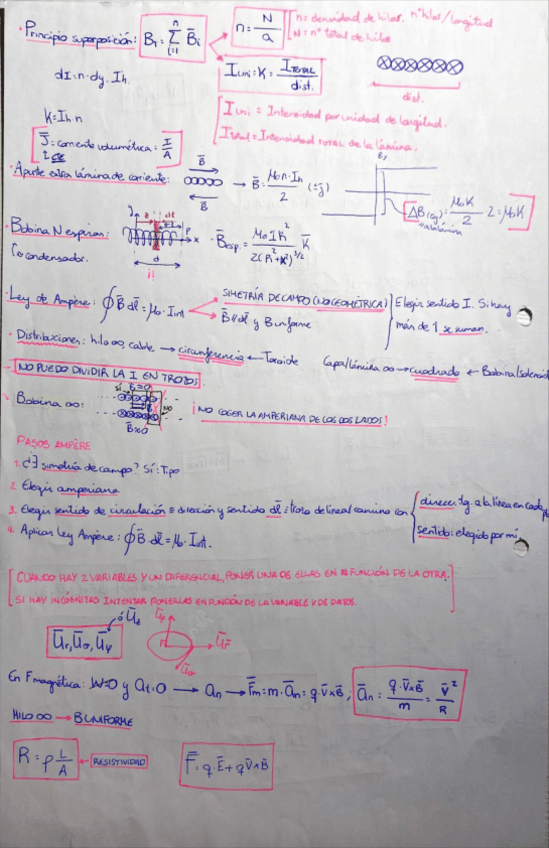 · Principio superposición: B̄_T = Σ_{i=1}^{n} B̄_i
n = N/a
n = densidad de hilos. nºhilos/longitud
N = nº total de hilos
dI = n·dy·I_h.
I_uni = K = I_TOTAL/dist.
dist.
I uni = Intensidad por unidad de longitud.
I total = Intensidad TOTAL de la lámina.
K = I_h·n
J̄ = corriente volumétrica = I/A
· Apunte extra lámina de corriente:
B̄
B̄
→ B̄ = μ₀·n·I_h/2 (±j̄)
ΔB = μ₀K/2 · 2 = μ₀K
· Bobina N espiras:
y
x
P
d
B̄esp. = μ₀IR²/2(R²+x²)^{3/2} k̄
Co condensador.
· Ley de Ampère: ∮B̄ dl̄ = μ₀·I_int
SIMETRÍA DE CAMPO (NO GEOMÉTRICA)
B̄ // dl̄ y B uniforme
Elegir sentido I. Si hay más de 1 se suman.
· Distribuciones: hilo ∞, cable → circunferencia ← Toroide
Capa/lámina ∞ → cuadrado ← Bobina/solenoide
NO PUEDO DIVIDIR LA I EN TROZOS
· Bobina ∞:
SÍ
B̄≈0
NO
B̄≈0
¡NO COGER LA AMPERIANA DE LOS DOS LADOS!
PASOS AMPÈRE
1. ¿∃ simetría de campo? Sí: Tipo
2. Elegir amperiana
3. Elegir sentido de circulación ≡ dirección y sentido dl̄ ≡ trozo de lineal camino con
direcc: tg. a la línea en cada
sentido: elegido por mí
4. Aplicar Ley Ampère: ∮B̄ dl̄ = μ₀·I_int.
CUANDO HAY 2 VARIABLES Y UN DIFERENCIAL, PONER UNA DE ELLAS EN FUNCIÓN DE LA OTRA.
SI HAY INCÓGNITAS INTENTAR PONERLAS EN FUNCIÓN DE LA VARIABLE Y DE DATOS.
ū_r, ū_θ, ū_φ
ū_φ
ū_r
ū_θ
En F magnética: W=0 y a_t=0 → a_n → F̄_m = m·ā_n = q·v̄×B̄ ; ā_n = q·v̄×B̄/m = v̄²/R
HILO ∞ → B UNIFORME
R = ρ L/A ← RESISTIVIDAD
F̄ = q·Ē + q v̄×B̄